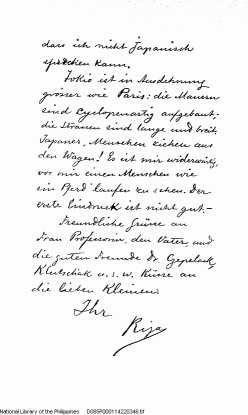 dass ich nicht Japanisch
sprechen kann.
Tokio ist in Ausdehnung
grösser wie Paris: die Mauern
sind cyclopenartig aufgebaut;
die Strassen sind lange und breit.
Japaner, Menschen ziehen aus
den Wagen! Es ist mir widerwärtig,
vor mir einen Menschen wie
ein Pferd laufen zu sehen. Der
erste Eindruck ist nicht gut.—
Freundliche Grüsse an
Frau Professorin, den Vater und
die guten Freunde Dr. Gepelack,
Klutschak u. s. w. Küsse an
die lieben Kleinen.
Ihr
Rizal
National Library of the Philippines